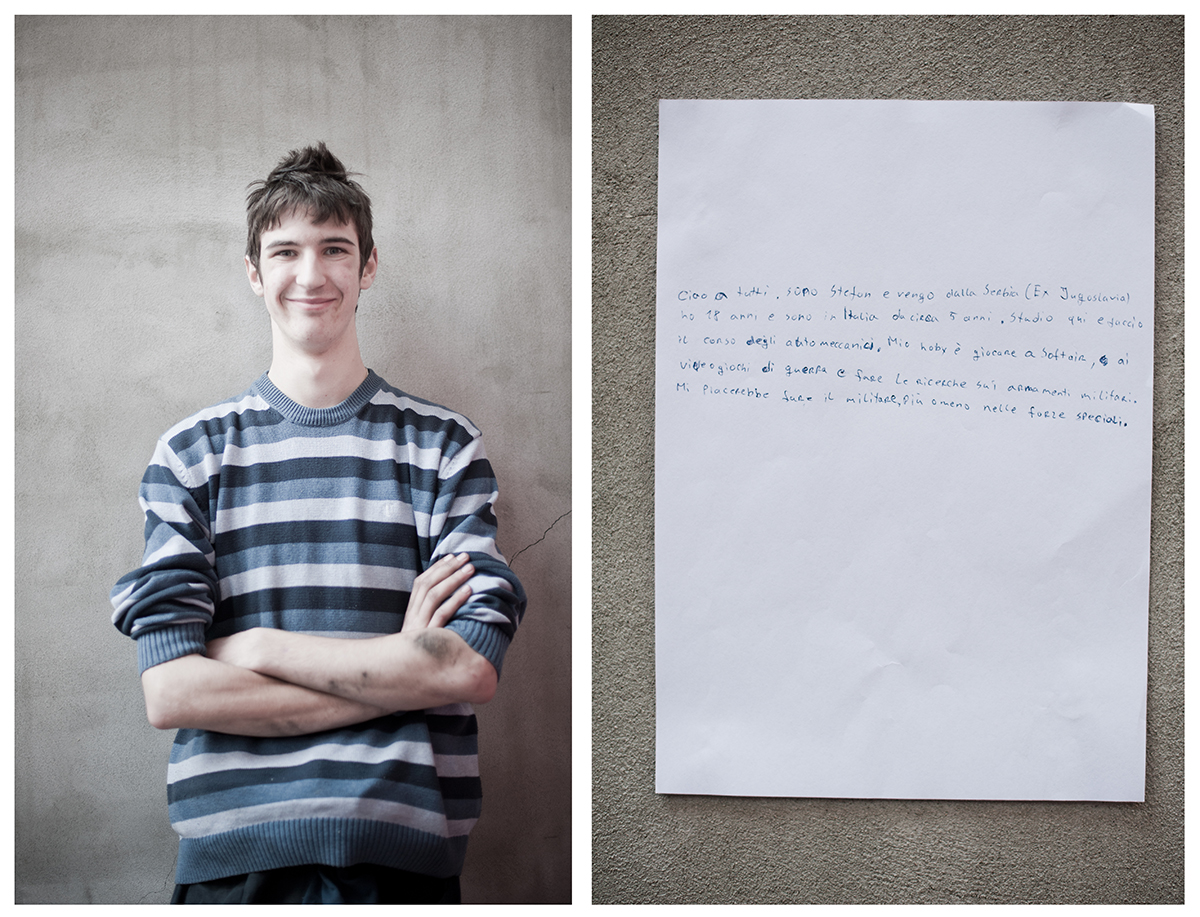 Ciao a tutti, sono Stefan e vengo dalla Serbia (Ex Jugoslavia)
ho 18 anni e sono in Italia da circa 5 anni. Studio qui e faccio
il corso degli automeccanici. Mio hoby è giocare a Softair, ai
videogiochi di guerra e fare le ricerche sui armamenti militari.
Mi piacerebbe fare il militare, più o meno nelle forze speciali.